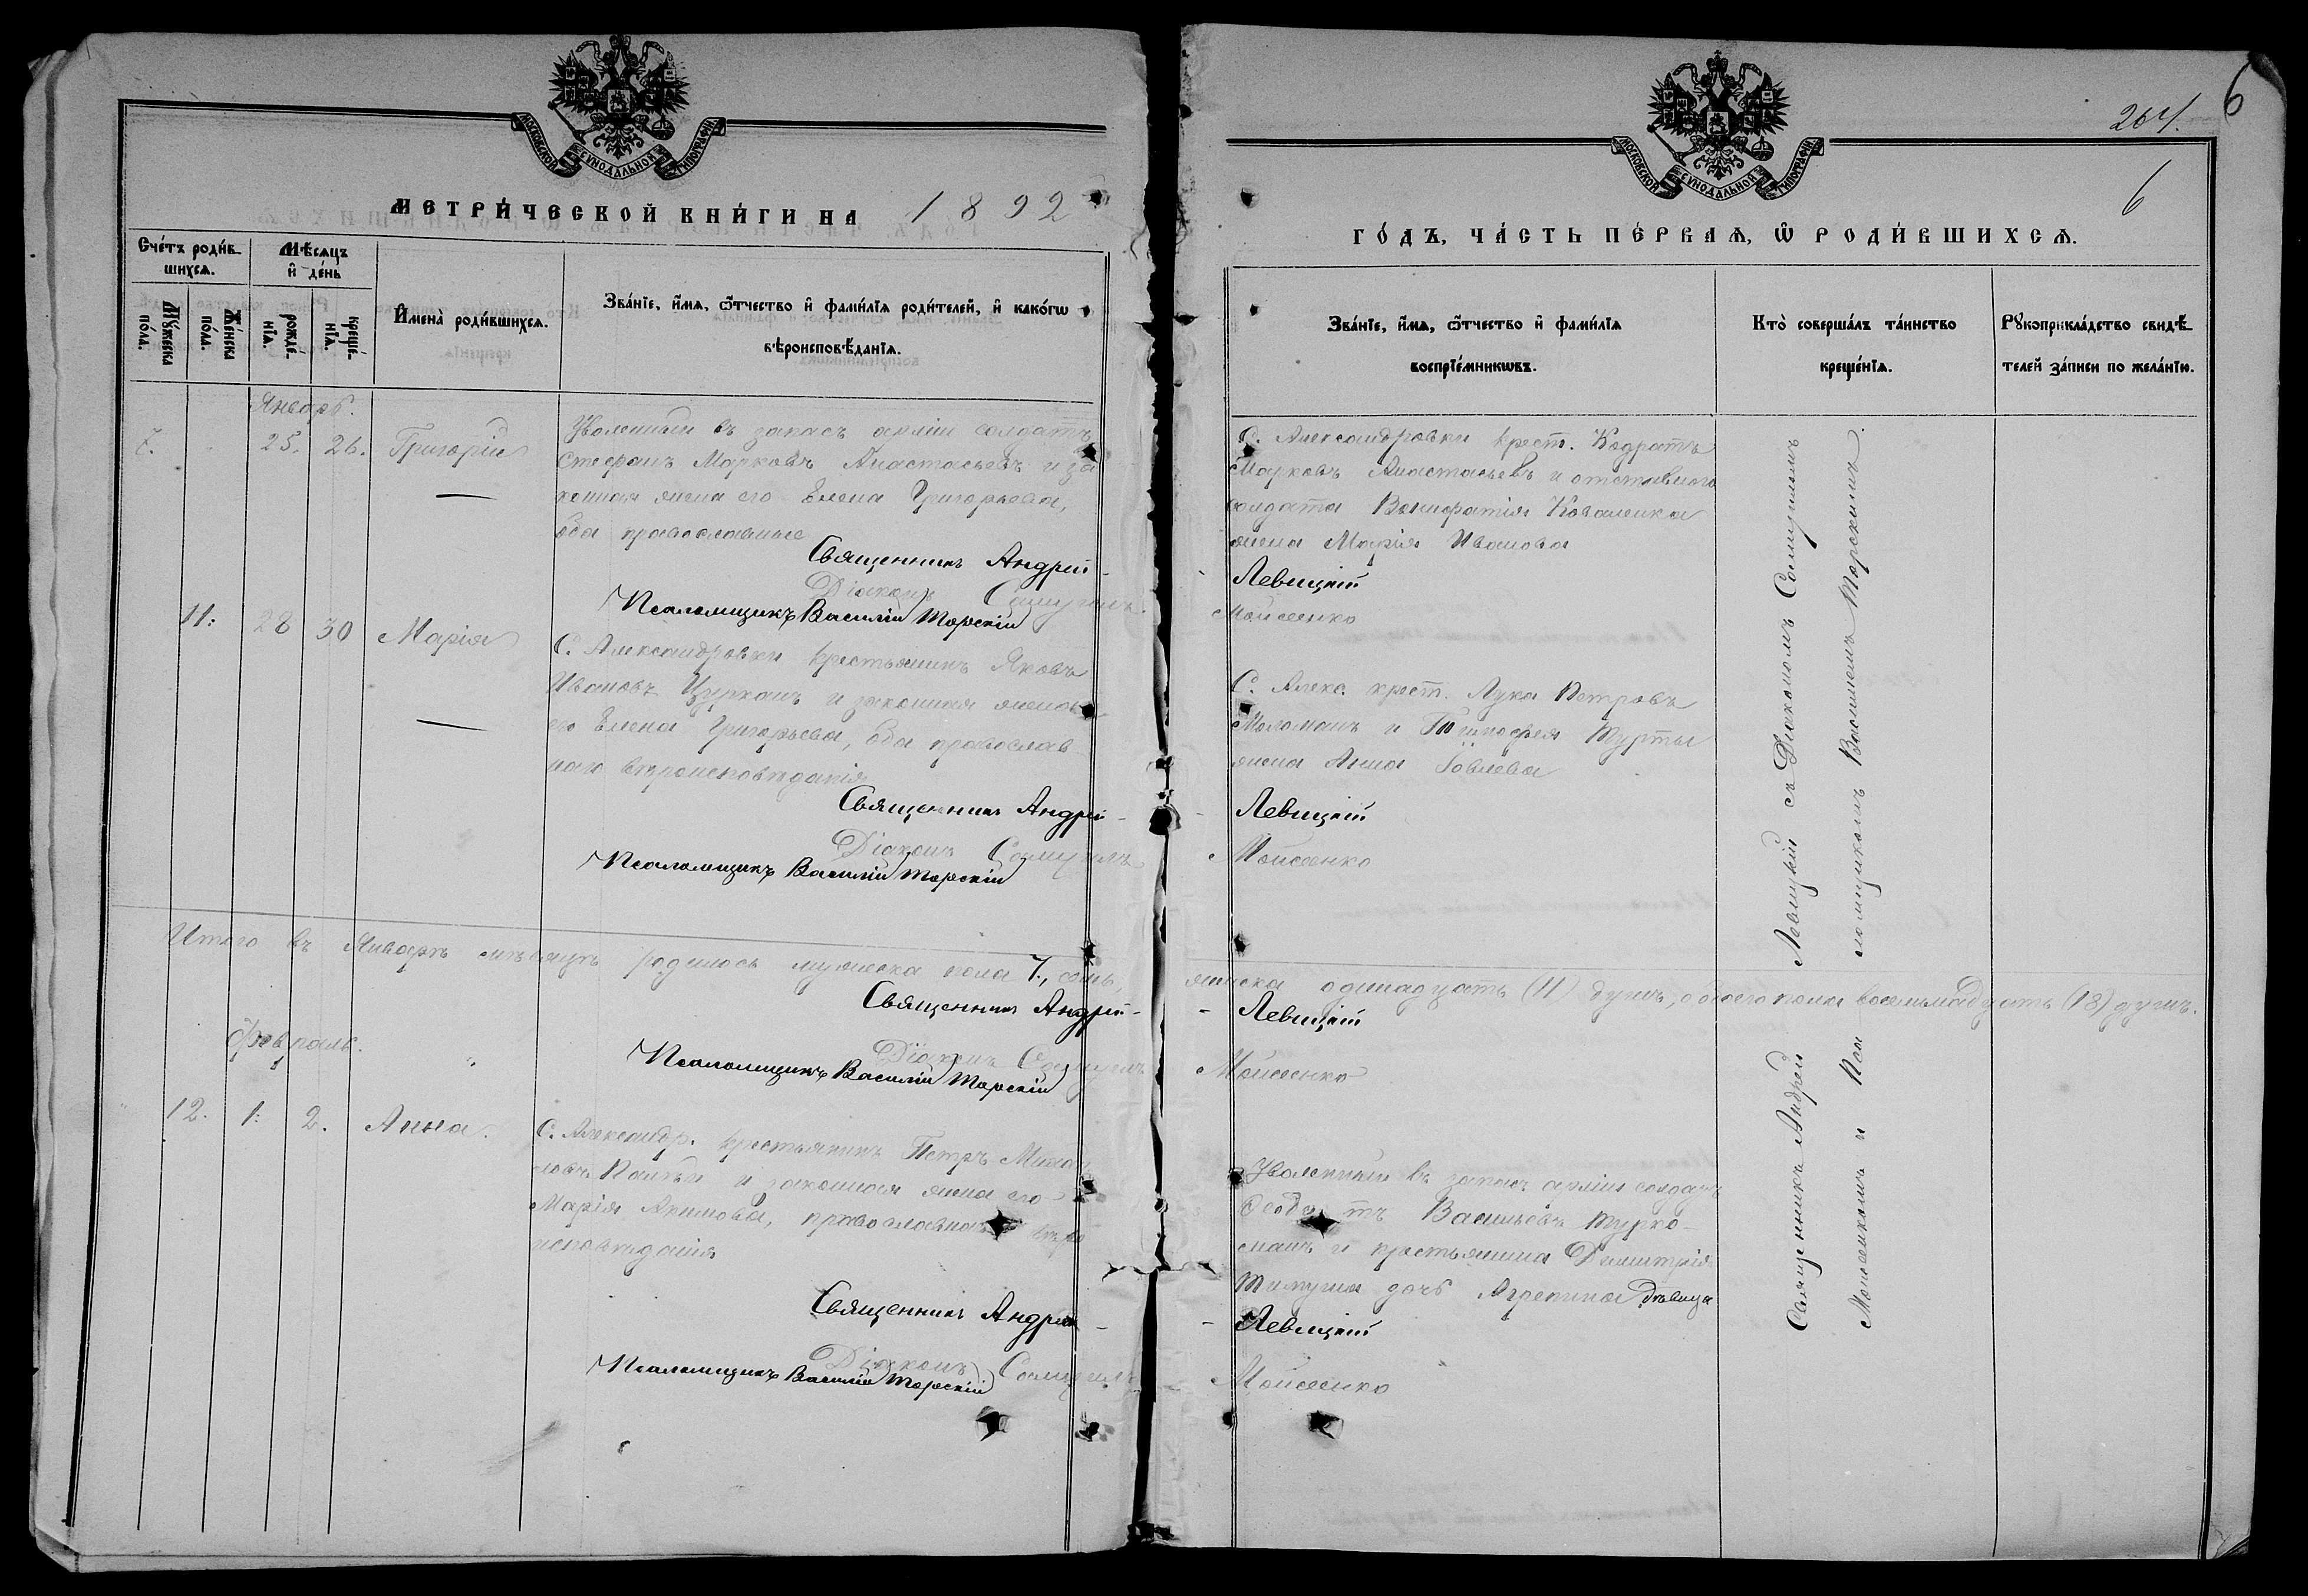 МОСКОВСКОЙ СѴНОДАЛЬНОЙ ТИПОГРАФІИ
МЕТРИ́ЧЕСКОЙ КНИ́ГИ НА 1892
Сче́тъ роди́в-
шихсѧ.
Мѣсѧцъ
и҆ де́нь
Мꙋ́жеска
по́ла.
Же́нска
по́ла.
рожде́-
нїѧ.
креще́-
нїѧ.
И҆мена̀ роди́вшихсѧ.
Зва́нїе, и҆́мѧ, ѻ҆́тчество и҆ фами́лїѧ роди́телей, и҆ како́гѡ
вѣроисповѣ́данїѧ.
Январь.
7. 25. 26. Григорій
Уволенный въ запасъ арміи солдатъ
Стефанъ Марковъ Анастасьевъ и за
конная жена его Елена Григорьева,
оба православные
Священникъ Андрей
Діаконъ Самуилъ
Псаломщикъ Василій Торскій
11. 28 30 Марія
С. Александровки крестьянинъ Яковъ
Ивановъ Цурканъ и законная жена
его Елена Григорьева, оба православ
наго вѣроисповѣданія
Священникъ Андрей
Діаконъ Самуилъ
Псаломщикъ Василій Торскій
Итого въ Январѣ мѣсяцѣ родилось мужеска пола 7, семь,
Священникъ Андрей
Діаконъ Самуилъ
Псаломщикъ Василій Торскій
Февраль.
12. 1. 2. Анна.
С. Александр. крестьянинъ Петръ
и законная жена его
Марія Акимова, православнаго вѣро
исповѣданія
Священникъ Андрей
Діаконъ Самуилъ
Псаломщикъ Василій Торскій
264.
6
6
МОСКОВСКОЙ СѴНОДАЛЬНОЙ ТИПОГРАФІИ
ГО́ДЪ, ЧА́СТЬ ПЕ́РВАѦ, Ѡ҆ РОДИ́ВШИХСѦ.
Зва́нїе, и҆́мѧ, ѻ҆́тчество и҆ фами́лїѧ
воспрїе́мникѡвъ.
Кто̀ соверша́лъ та́инство
креще́нїѧ.
Рꙋкоприкла́дство свидѣ́-
телей за́писи по жела́нїю.
С. Александровки крест. Кодратъ
Марковъ Анастасьевъ и отставного
солдата Вонифатія Коваленка
жена Марія Иванова
Левицкій
Мойсеенко
С. Алекс. крест. Лука Петровъ
Моломанъ и Тимофея Мурты
жена Анна
Левицкій
Мойсеенко
женска одинадцать (11) душъ, обоего пола восемьнадцать (18) душъ.
Левицкій
Мойсеенко
Уволенный въ запасъ арміи солдатъ
Васильевъ Турко-
манъ и крестьянина Димитрія
дочь Агрепина дѣвица
Левицкій
Мойсеенко
Священникъ Андрей Левицкій съ Діакономъ Самуиломъ
Мойсеенкомъ и Псаломщикомъ Василіемъ Торскимъ.